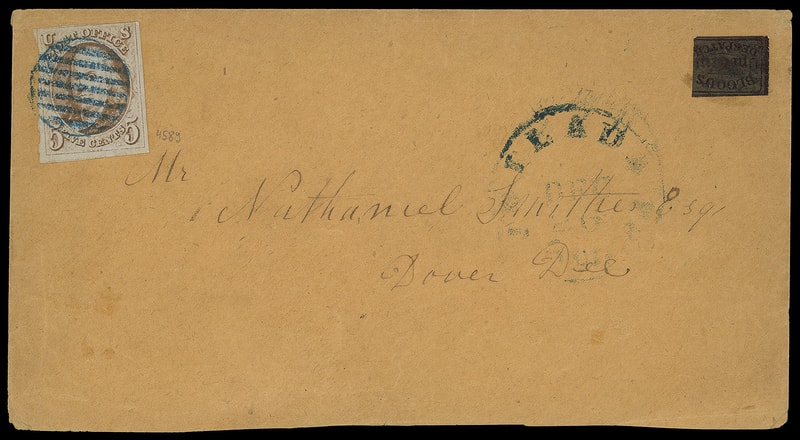 U S
POST OFFICE
5 FIVE CENTS 5
BLOODS
DESPATCH
4589
Mr
Nathaniel Smithers Esq.
Dover Del